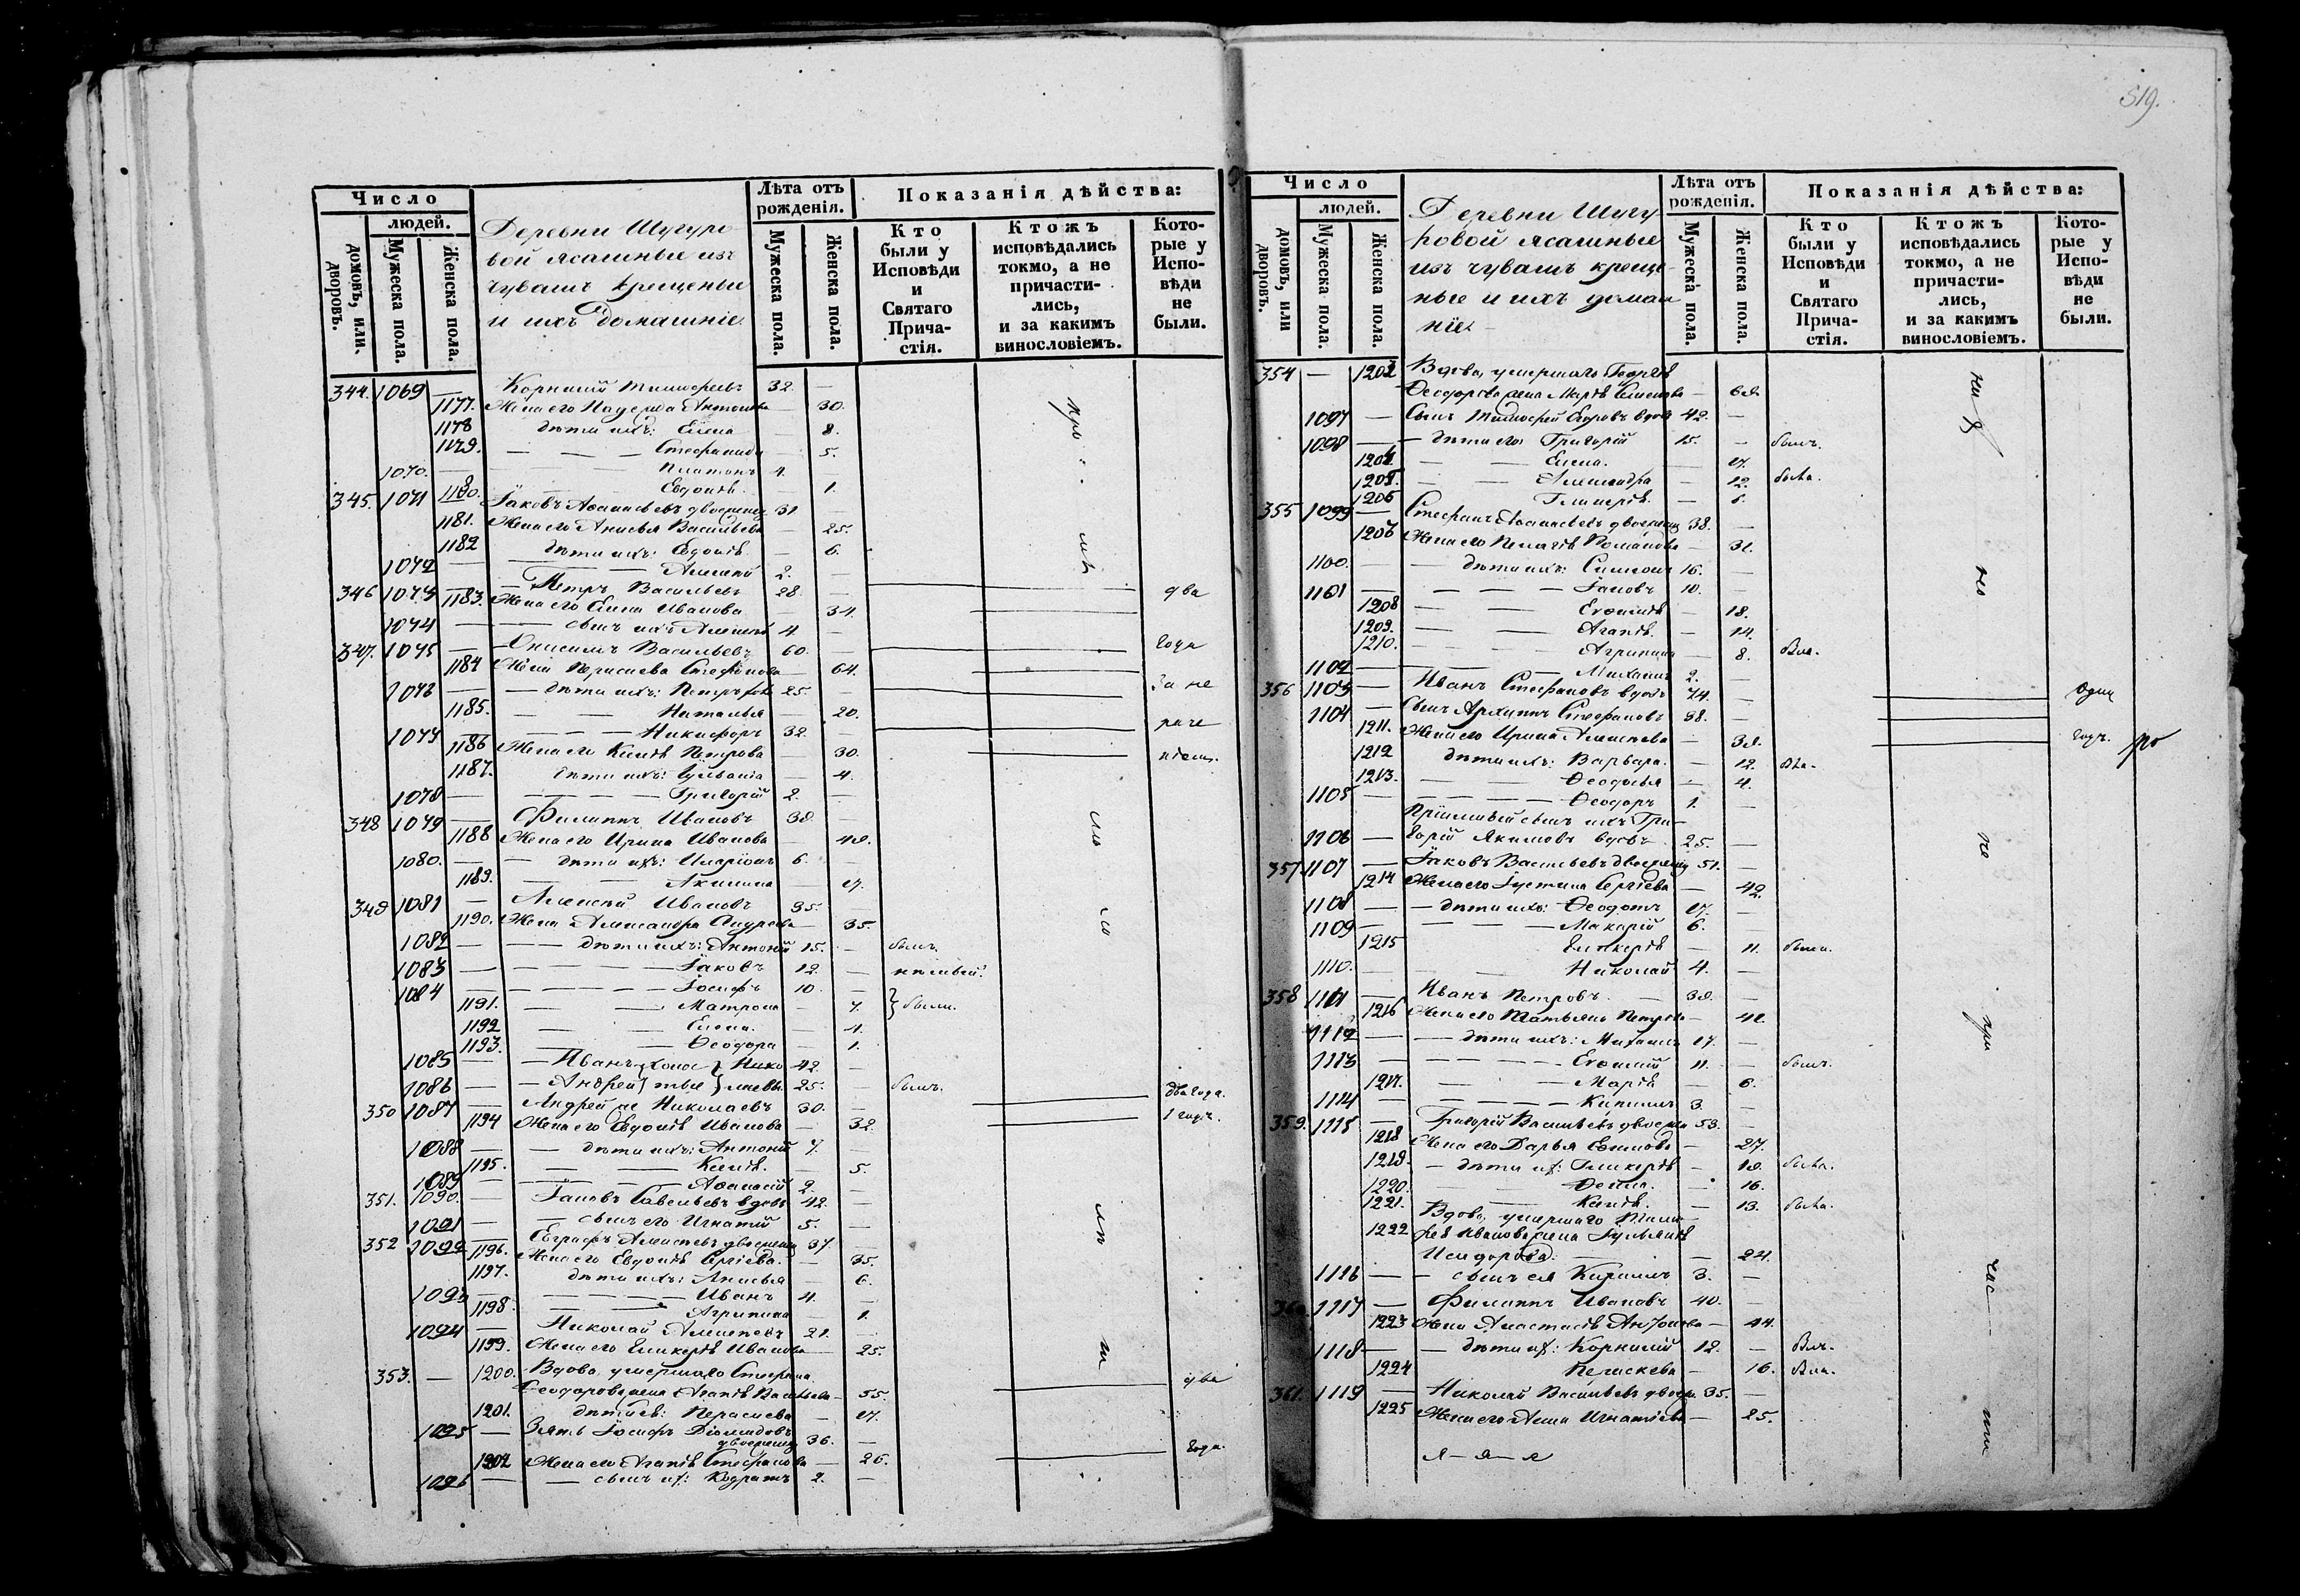 519.
Число
людей.
домовъ, или дворовъ.
Мужеска пола.
Женска пола.
Деревни Шугуро
вой ясашные изъ
чувашъ крещеные
и ихъ домашніе
Лѣта отъ
рожденія.
Мужеска пола.
Женска пола.
Показанія дѣйства:
Кто
были у
Исповѣди
и
Святаго
Прича-
стія.
Ктожъ
исповѣдались
токмо, а не
причасти-
лись,
и за какимъ
винословіемъ.
Кото-
рые у
Испо-
вѣди
не
были.
344. 1069 — Корнилий Тимофеевъ 32. —
1177. Жена его Надежда Антонова — 30.
1178 дѣти ихъ: Елена — 8.
1179. — — — Стефанида — 5.
1070. — Платонъ 4.
1180. Евдокія — 1.
345. 1071 Іаковъ Афанасьевъ двоеженец 31 —
1181. Жена его Анисья Васильева — 25.
1182 дѣти ихъ: Евдокія — 6.
1072 — — — Алексей 2. —
346 1073 — Петръ Васильевъ 28. — два
1183. Жена его Елена Иванова 31.
1074 — сынъ ихъ Алексей 4. —
347. 1075 — Онисимъ Васильевъ 60. — года
1184 Жена Параскева Стефанова — 64.
1076 — — дѣти ихъ: Петръ 25. — за не
1185. — — Наталья — 20.
1077 — — — Никифоръ 32. —
1186 Жена его Ксенія Петрова — 30.
1187. дѣти ихъ: — 4.
1078 — — — — — Григорій 2. —
348 1079 — Филиппъ Ивановъ 39. —
1188 Жена его Ирина Иванова — 49.
1080. — — дѣти ихъ: Иларіонъ 6. —
1189. — — Акилина —
349 1081 — Алексей Ивановъ 35. —
1190. Жена Александра Андреева — 35.
1082 — — — дѣти ихъ: Антоній 15. — былъ.
1083 — — — — — Іаковъ 12. —
1084 — — — — — Іосифъ 10. —
1191. — — Матрона — 7. были.
1192 — — Елена. — 4.
1193. — — Феодора — 1.
1085 — — Иванъ 42. —
1086 — — Андрей 25. — былъ.
два года.
350 1087 — Андрей же Николаевъ 30. — 1 годъ.
1194 Жена его Евдокія Иванова — 32.
1088 — — дѣти ихъ: Антоній 7. —
1195. — — Ксенія. — 5.
1089 — — — Афанасій 2. —
351. 1090. — Іаковъ Савельевъ вдовъ 42. —
1091 — — сынъ его Игнатій 5. —
352 1092 — Евграфъ Алексеевъ двоеженец 37 —
1196. Жена его Евдокія Сергіева. — 35.
1197. дѣти ихъ: Анисья — 6.
1093 — — — — — Иванъ 4. —
1198 — — Агрипина — 1.
1094 — Николай Алексеевъ 21. —
1199. Жена его Гликерія Иванова — 25.
353. — 1200. Вдова, умершаго Стефана
Феодорова жена Агафія Васильева — 55. два
1201. дѣти ея: Параскева —
1095 — Зять Іосифъ Діомидовъ
двоеженец 36. —
года.
1202 Жена его Агафія Стефанова — 26.
1096 — — сынъ их: Кодратъ 2. —
Число
людей.
домовъ, или дворовъ.
Мужеска пола.
Женска пола.
Деревни Шугу
ровой ясашные
изъ чувашъ креще-
ные и ихъ домаш
ніе
Лѣта отъ
рожденія.
Мужеска пола.
Женска пола.
Показанія дѣйства:
Кто
были у
Исповѣди
и
Святаго
Прича-
стія.
Ктожъ
исповѣдались
токмо, а не
причасти-
лись,
и за какимъ
винословіемъ.
Кото-
рые у
Испо-
вѣди
не
были.
354 — 1203 Вдова, умершаго Георгія
Феодорова жена Марія Семенова —
1097 — Сынъ Тимофей Егоровъ вдовъ 42. —
1098 — — дѣти его: Григорій 15. — былъ.
1204 — — Елена. —
1205. — — Александра — 12. была.
1206 Гликерія. — 6.
355 1099 — Стефанъ Афанасьевъ двоеженец 38. —
1207 Жена его Пелагія Романова — 31.
1100. — — дѣти ихъ: Симеонъ 16. —
1101 — — — — — Іаковъ 10. —
1208 — — Евфимія — 18.
1209. — — Агафія. — 14.
1210. — — Агрипина — 8. была.
1102 — — — Михаилъ 2. —
356 1103 — Иванъ Стефановъ вдовъ 74. — один
1104 — Сынъ Архипъ Стефановъ 38. —
1211. Жена его Ирина Алексеева — 39. годъ.
1212 дѣти ихъ: Варвара. — 12. была.
1213. — — Феодосья — 4.
1105 — — — — — Феодоръ 1. —
Пріимный сынъ ихъ Гри-
1106 — горій Якимовъ вдовъ 25. —
357. 1107 — Іаковъ Васильевъ двоеженец 51. —
1214 Жена его Іустина Сергіева — 42.
1108 — — дѣти ихъ: Феодотъ 17. —
1109 — — — — Макарій 6. —
1215 Гликерія — 11. была.
1110. — — Николай 4. —
358 1111 — Иванъ Петровъ. — 39. —
1216 Жена его Татьяна Петрова — 41.
1112 — — дѣти ихъ: Михаилъ 17. —
1113 — — — — — Евфимій 11. — былъ.
1217. — — Марія — 6.
1114 — — — — — Кирилъ 3. —
359. 1115 — Григорій Васильевъ двоежен 53. —
1218 Жена его Дарья Ефимова — 27.
1219. — дѣти их: Гликерія — 19. была.
1220. — Фекла. — 16.
1221. — Ксенія. — 13. была.
Вдова, умершаго Тимо-
1222 фея Иванова жена Іульянія
Исидорова: — — 24.
1116 — — сынъ ея Кирилъ 3. —
360. 1117 — Филиппъ Ивановъ 40. —
1223 Жена Анастасія Антонова — 44.
1118 — — дѣти их: Корнилій 12. — былъ.
1224 Параскева — 16. была.
361. 1119 — Николай Васильевъ двоеж. 35. —
1225 Жена его Анна Игнатіева — 25.